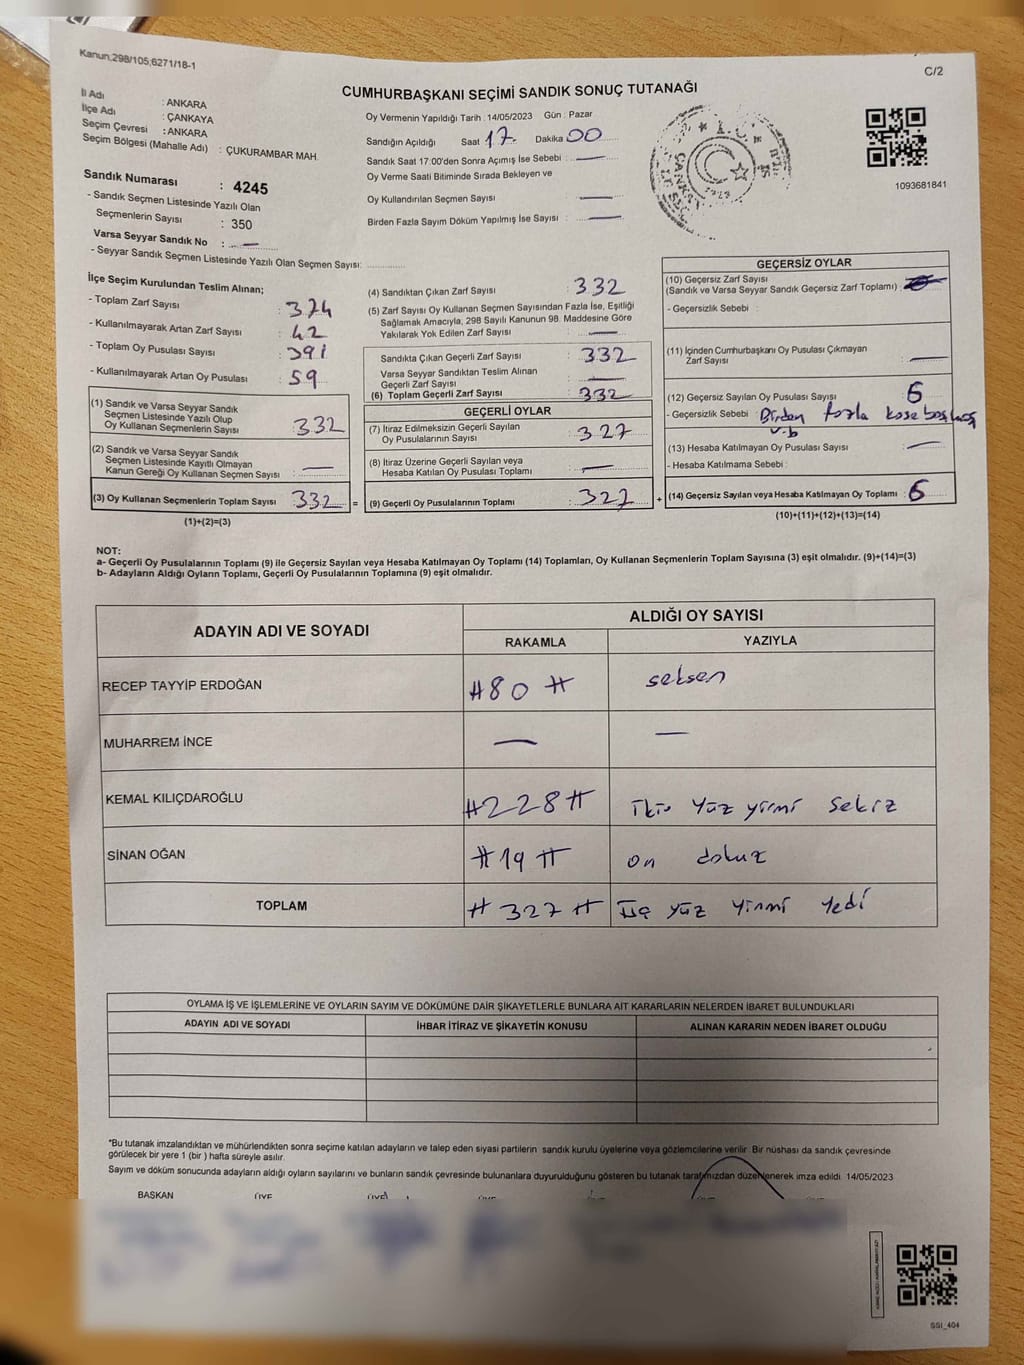 Kanun.298/105;6271/18-1
C/2
CUMHURBAŞKANI SEÇİMİ SANDIK SONUÇ TUTANAĞI
İl Adı : ANKARA
İlçe Adı : ÇANKAYA
Seçim Çevresi : ANKARA
Seçim Bölgesi (Mahalle Adı) : ÇUKURAMBAR MAH.
Sandık Numarası : 4245
- Sandık Seçmen Listesinde Yazılı Olan
Seçmenlerin Sayısı : 350
Varsa Seyyar Sandık No : —
- Seyyar Sandık Seçmen Listesinde Yazılı Olan Seçmen Sayısı:
Oy Vermenin Yapıldığı Tarih : 14/05/2023 Gün : Pazar
Sandığın Açıldığı Saat 17 Dakika 00
Sandık Saat 17:00'den Sonra Açımış İse Sebebi : —
Oy Verme Saati Bitiminde Sırada Bekleyen ve
Oy Kullandırılan Seçmen Sayısı —
Birden Fazla Sayım Döküm Yapılmış İse Sayısı : —
1093681841
İlçe Seçim Kurulundan Teslim Alınan;
- Toplam Zarf Sayısı : 374
- Kullanılmayarak Artan Zarf Sayısı : 42
- Toplam Oy Pusulası Sayısı : 391
- Kullanılmayarak Artan Oy Pusulası : 59
(1) Sandık ve Varsa Seyyar Sandık
Seçmen Listesinde Yazılı Olup
Oy Kullanan Seçmenlerin Sayısı : 332
(2) Sandık ve Varsa Seyyar Sandık
Seçmen Listesinde Kayıtlı Olmayan
Kanun Gereği Oy Kullanan Seçmen Sayısı : —
(3) Oy Kullanan Seçmenlerin Toplam Sayısı : 332 =
(1)+(2)=(3)
(4) Sandıktan Çıkan Zarf Sayısı : 332
(5) Zarf Sayısı Oy Kullanan Seçmen Sayısından Fazla İse, Eşitliği
Sağlamak Amacıyla, 298 Sayılı Kanunun 98. Maddesine Göre
Yakılarak Yok Edilen Zarf Sayısı : —
Sandıkta Çıkan Geçerli Zarf Sayısı : 332
Varsa Seyyar Sandıktan Teslim Alınan
Geçerli Zarf Sayısı : —
(6) Toplam Geçerli Zarf Sayısı : 332
GEÇERLİ OYLAR
(7) İtiraz Edilmeksizin Geçerli Sayılan
Oy Pusulalarının Sayısı : 327
(8) İtiraz Üzerine Geçerli Sayılan veya
Hesaba Katılan Oy Pusulası Toplamı : —
(9) Geçerli Oy Pusulalarının Toplamı : 327 +
GEÇERSİZ OYLAR
(10) Geçersiz Zarf Sayısı
(Sandık ve Varsa Seyyar Sandık Geçersiz Zarf Toplamı) :
- Geçersizlik Sebebi :
(11) İçinden Cumhurbaşkanı Oy Pusulası Çıkmayan
Zarf Sayısı : —
(12) Geçersiz Sayılan Oy Pusulası Sayısı : 6
- Geçersizlik Sebebi : Birden fazla
v.b
(13) Hesaba Katılmayan Oy Pusulası Sayısı : —
- Hesaba Katılmama Sebebi :
(14) Geçersiz Sayılan veya Hesaba Katılmayan Oy Toplamı : 6
(10)+(11)+(12)+(13)=(14)
NOT:
a- Geçerli Oy Pusulalarının Toplamı (9) ile Geçersiz Sayılan veya Hesaba Katılmayan Oy Toplamı (14) Toplamları, Oy Kullanan Seçmenlerin Toplam Sayısına (3) eşit olmalıdır. (9)+(14)=(3)
b- Adayların Aldığı Oyların Toplamı, Geçerli Oy Pusulalarının Toplamına (9) eşit olmalıdır.
ADAYIN ADI VE SOYADI
ALDIĞI OY SAYISI
RAKAMLA YAZIYLA
RECEP TAYYİP ERDOĞAN #80# seksen
MUHARREM İNCE — —
KEMAL KILIÇDAROĞLU #228# iki yüz yirmi sekiz
SİNAN OĞAN #19# on dokuz
TOPLAM #327# Üç yüz yirmi yedi
OYLAMA İŞ VE İŞLEMLERİNE VE OYLARIN SAYIM VE DÖKÜMÜNE DAİR ŞİKAYETLERLE BUNLARA AİT KARARLARIN NELERDEN İBARET BULUNDUKLARI
ADAYIN ADI VE SOYADI İHBAR İTİRAZ VE ŞİKAYETİN KONUSU ALINAN KARARIN NEDEN İBARET OLDUĞU
"Bu tutanak imzalandıktan ve mühürlendikten sonra seçime katılan adayların ve talep eden siyasi partilerin sandık kurulu üyelerine veya gözlemcilerine verilir. Bir nüshası da sandık çevresinde
görülecek bir yere 1 (bir ) hafta süreyle asılır.
Sayım ve döküm sonucunda adayların aldığı oyların sayılarını ve bunların sandık çevresinde bulunanlara duyurulduğunu gösteren bu tutanak tarafımızdan düzenlenerek imza edildi. 14/05/2023
BAŞKAN ÜYE ÜYE ÜYE
SSI_404